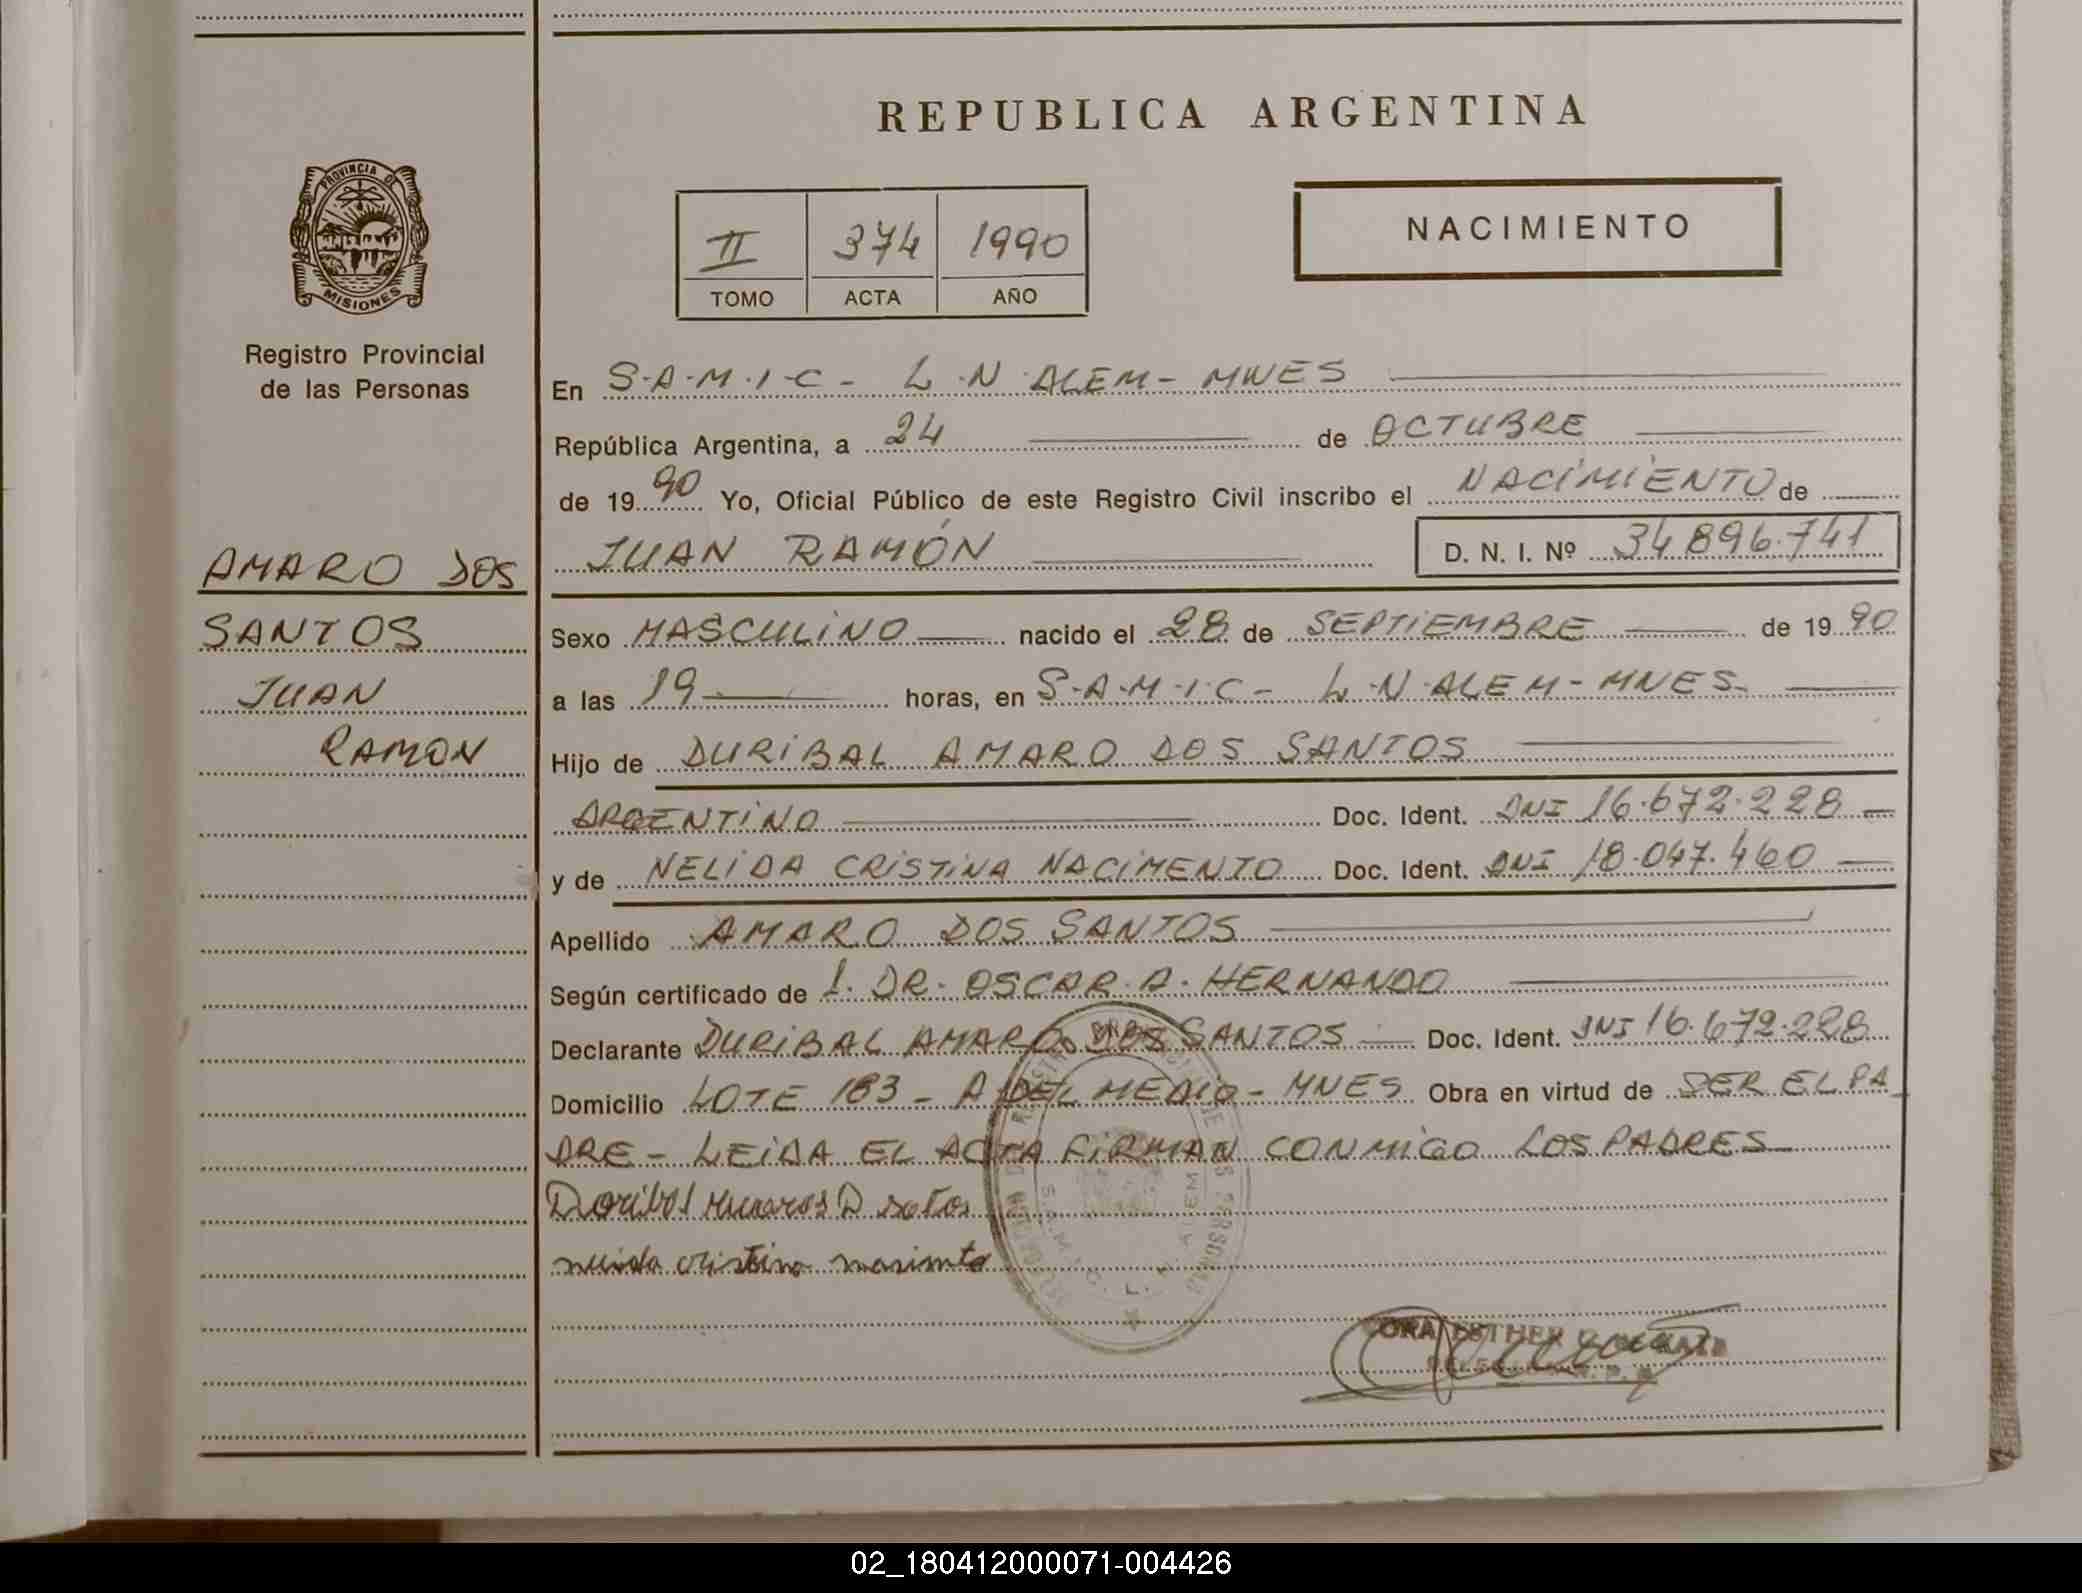 REPUBLICA ARGENTINA
PROVINCIA DE
MISIONES
Registro Provincial
de las Personas
NACIMIENTO
II 374 1990
TOMO ACTA AÑO
En S.A.M.I.C - L.N ALEM - MNES
República Argentina, a 24 de OCTUBRE
de 1990 Yo, Oficial Público de este Registro Civil inscribo el NACIMIENTO de
JUAN RAMÓN D. N. I. Nº 34896.741
AMARO DOS
SANTOS
JUAN
RAMON
Sexo MASCULINO nacido el 28 de SEPTIEMBRE de 1990
a las 19 horas, en S.A.M.I.C - L.N ALEM - MNES
Hijo de DURIBAL AMARO DOS SANTOS
ARGENTINO Doc. Ident. DNI 16.672.228
y de NELIDA CRISTINA NACIMENTO Doc. Ident. DNI 18.047.460
Apellido AMARO DOS SANTOS
Según certificado de 1. DR. OSCAR A. HERNANDO
Declarante DURIBAL AMARO DOS SANTOS Doc. Ident. DNI 16.672.228
Domicilio LOTE 183 - A DEL MEDIO - MNES Obra en virtud de SER EL PA
DRE - LEIDA EL ACTA FIRMAN CONMIGO LOS PADRES
cristina
ESTHER
02_180412000071-004426